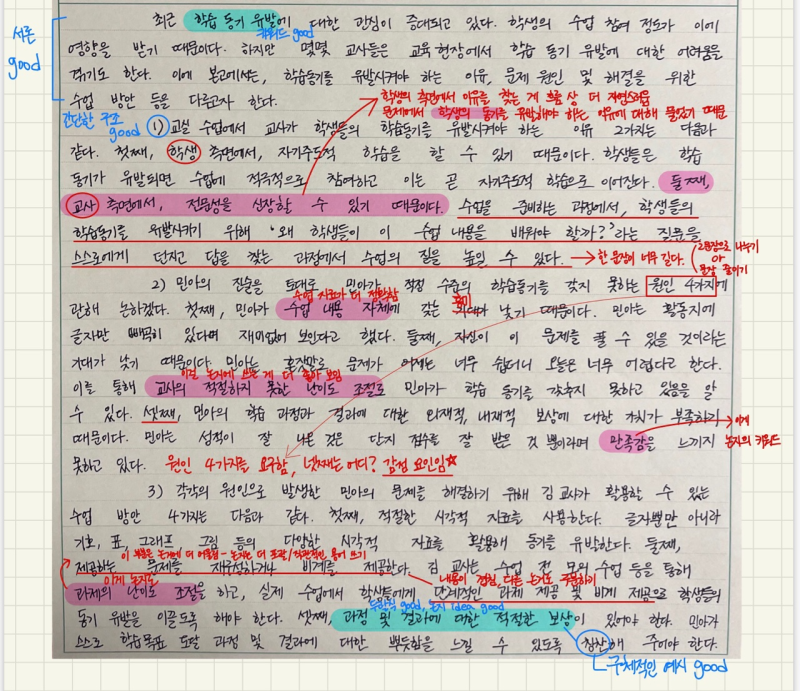 최근 학습 동기 유발에 대한 관심이 증대되고 있다. 학생의 수업 참여 정도가 이에
서론
good
키워드 good
영향을 받기 때문이다. 하지만 몇몇 교사들은 교육 현장에서 학습 동기 유발에 대한 어려움을
겪기도 한다. 이에 본고에서는, 학습동기를 유발시켜야 하는 이유, 문제 원인 및 해결을 위한
수업 방안 등을 다루고자 한다.
학생의 측면에서 이유를 찾는 게 흐름 상 더 자연스러움
문제에서 학생의 동기를 유발해야 하는 이유에 대해 물었기 때문
간단한 구조
good
1) 교실 수업에서 교사가 학생들의 학습동기를 유발시켜야 하는 이유 2가지는 다음과
같다. 첫째, 학생 측면에서, 자기주도적 학습을 할 수 있기 때문이다. 학생들은 학습
동기가 유발되면 수업에 적극적으로 참여하고 이는 곧 자기주도적 학습으로 이어진다. 둘째,
교사 측면에서, 전문성을 신장할 수 있기 때문이다. 수업을 준비하는 과정에서, 학생들의
학습동기를 유발시키기 위해 '왜 학생들이 이 수업 내용을 배워야 할까?'라는 질문을
스스로에게 던지고 답을 찾는 과정에서 수업의 질을 높일 수 있다.
→ 한 문장이 너무 길다.
2문장으로 나누기
or
문장 줄이기
2) 민아의 진술을 토대로 민아가 적정 수준의 학습동기를 갖지 못하는 원인 4가지에
수업 자료가 더 정확함
관해 논하겠다. 첫째, 민아가 수업 내용 자체에 갖는 흥미가 낮기 때문이다. 민아는 활동지에
글자만 빽빽히 있다며 재미없어 보인다고 했다. 둘째, 자신이 이 문제를 풀 수 있을 것이라는
기대가 낮기 때문이다. 민아는 혼잣말로 문제가 어제는 너무 쉽더니 오늘은 너무 어렵다고 한다.
이걸 논지에 쓰는 게 더 좋아 보임
이를 통해 교사의 적절하지 못한 난이도 조절로 민아가 학습 동기를 갖추지 못하고 있음을 알
수 있다. 셋째, 민아의 학습 과정과 결과에 대한 외재적, 내재적 보상에 대한 가치가 부족하기
때문이다. 민아는 성적이 잘 나온 것은 단지 점수를 잘 받은 것 뿐이라며 만족감을 느끼지
이게
논지의 키워드
못하고 있다. 원인 4가지를 요구함, 넷째는 어디? 감점 요인임☆
3) 각각의 원인으로 발생한 민아의 문제를 해결하기 위해 김 교사가 활용할 수 있는
수업 방안 4가지는 다음과 같다. 첫째, 적절한 시각적 자료를 사용한다. 글자뿐만 아니라
기호, 표, 그래프, 그림 등의 다양한 시각적 자료를 활용해 동기를 유발한다. 둘째,
이 부분은 논거에 더 어울림 - 논지는 더 포괄/직관적인 용어 쓰기
제공하는 문제를 재구성하거나 비계를 제공한다. 김 교사는 수업 전 모의 수업 등을 통해
이게 논지로
내용이 겹침, 다른 논거로 주장하기
과제의 난이도 조정을 하고, 실제 수업에서 학생들에게 단계적인 과제 제공 및 비계 제공으로 학생들의
good, 논지 idea good
동기 유발을 이끌도록 해야 한다. 셋째, 과정 및 결과에 대한 적절한 보상이 있어야 한다. 민아가
스스로 학습목표 도달 과정 및 결과에 대한 뿌듯함을 느낄 수 있도록 칭찬해 주어야 한다.
구체적인 예시 good